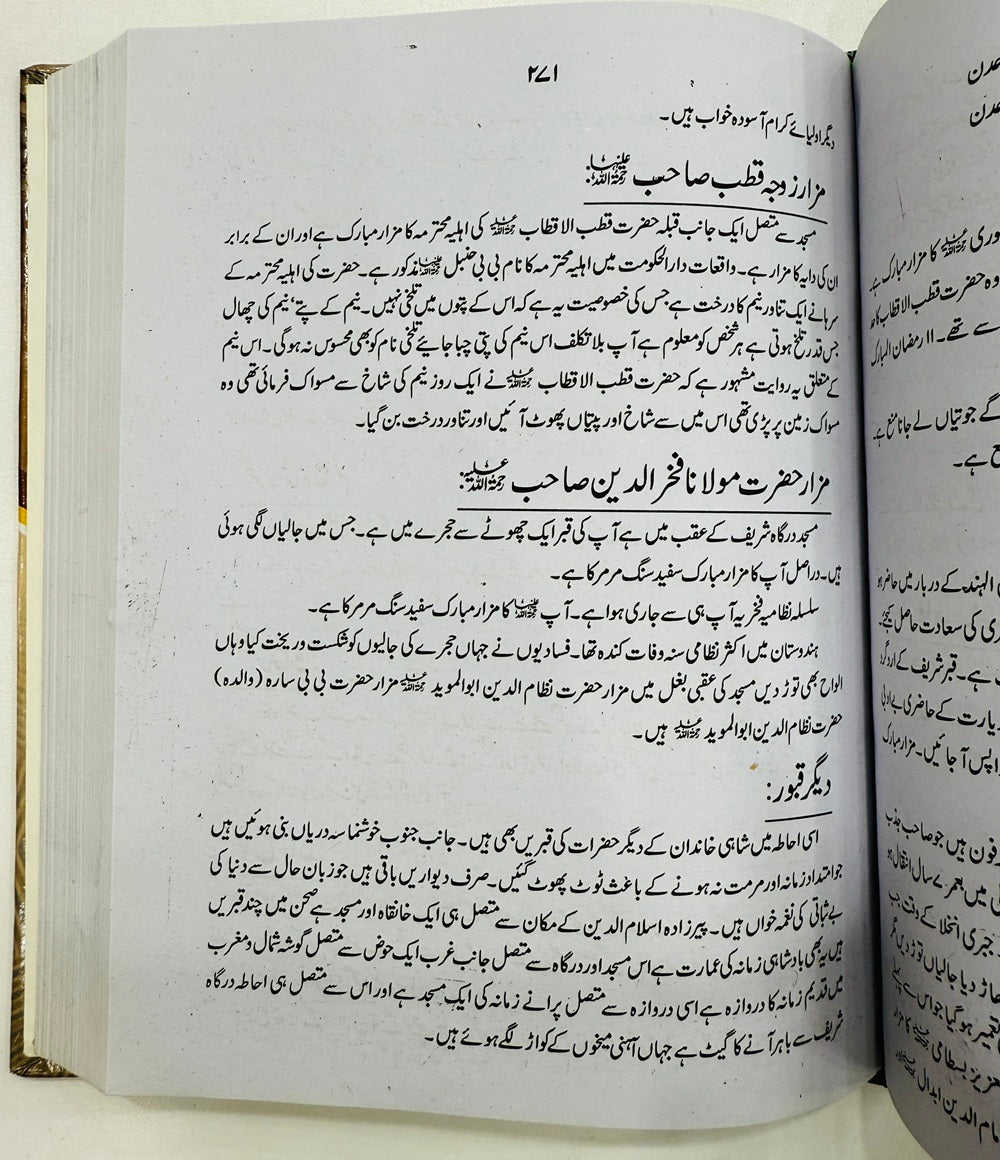 ۲۷۱
دیگر اولیائے کرام آسودہ خواب ہیں۔
مزار زوجہ قطب صاحب رحمۃ اللہ علیہا:
مسجد سے متصل ایک جانب قبلہ حضرت قطب الاقطاب رحمۃ اللہ علیہ کی اہلیہ محترمہ کا مزار مبارک ہے اور ان کے برابر
ان کی دایہ کا مزار ہے۔ واقعات دارالحکومت میں اہلیہ محترمہ کا نام بی بی حنبل رحمۃ اللہ علیہا مذکور ہے۔ حضرت کی اہلیہ محترمہ کے
سرہانے ایک تناور نیم کا درخت ہے جس کی خصوصیت یہ ہے کہ اس کے پتوں میں تلخی نہیں۔ نیم کے پتے، نیم کی چھال
جس قدر تلخ ہوتی ہے ہر شخص کو معلوم ہے آپ بلا تکلف اس نیم کی پتی چبا جایئے تلخی نام کو بھی محسوس نہ ہوگی۔ اس نیم
کے متعلق یہ روایت مشہور ہے کہ حضرت قطب الاقطاب رحمۃ اللہ علیہ نے ایک روز نیم کی شاخ سے مسواک فرمائی تھی وہ
مسواک زمین پر پڑی تھی اس میں سے شاخ اور پیتاں پھوٹ آئیں اور تناور درخت بن گیا۔
مزار حضرت مولانا فخر الدین صاحب رحمۃ اللہ علیہ:
مسجد درگاہ شریف کے عقب میں ہے آپ کی قبر ایک چھوٹے سے حجرے میں ہے۔ جس میں جالیاں لگی ہوئی
ہیں۔ دراصل آپ کا مزار مبارک سفید سنگ مرمر کا ہے۔
سلسلہ نظامیہ فخریہ آپ ہی سے جاری ہوا ہے۔ آپ رحمۃ اللہ علیہ کا مزار مبارک سفید سنگ مرمر کا ہے۔
ہندوستان میں اکثر نظامی سنہ وفات کندہ تھا۔ فسادیوں نے جہاں حجرے کی جالیوں کو شکست وریخت کیا وہاں
الواح بھی توڑ دیں مسجد کی عقبی بغل میں مزار حضرت نظام الدین ابوالموید رحمۃ اللہ علیہ مزار حضرت بی بی سارہ (والدہ)
حضرت نظام الدین ابوالموید رحمۃ اللہ علیہ ہیں۔
دیگر قبور:
اسی احاطہ میں شاہی خاندان کے دیگر حضرات کی قبریں بھی ہیں۔ جانب جنوب خوشنما سہ دریاں بنی ہوئیں ہیں
جو امتداد زمانہ اور مرمت نہ ہونے کے باعث ٹوٹ پھوٹ گئیں۔ صرف دیواریں باقی ہیں جو زبان حال سے دنیا کی
بے ثباتی کی نغمہ خواں ہیں۔ پیرزادہ اسلام الدین کے مکان سے متصل ہی ایک خانقاہ اور مسجد ہے صحن میں چند قبریں
ہیں یہ بھی بادشاہی زمانہ کی عمارت ہے اس مسجد اور درگاہ سے متصل جانب غرب ایک حوض سے متصل گوشہ شمال و مغرب
میں قدیم زمانہ کا دروازہ ہے اسی دروازہ سے متصل پرانے زمانہ کی ایک مسجد ہے اور اس سے متصل ہی احاطہ درگاہ
شریف سے باہر آنے کا گیٹ ہے جہاں آہنی میخوں کے کواڑ لگے ہوئے ہیں۔
عدن
عدن
وری رحمۃ اللہ علیہ کا مزار مبارک ہے۔
وہ حضرت قطب الاقطاب کا
سے تھے۔ ۱۱ رمضان المبارک
گے جوتیاں لے جانا منع ہے۔
ع ہے۔
الہند کے دربار میں حاضر ہو
ری کی سعادت حاصل کیجئے۔
ہے۔ قبر شریف کے اردگرد
یارت کے حاضری بے ادبی
اپس آجائیں۔ مزار مبارک
فون ہیں جو صاحب جذب
میں بعمر ۷ سال انتقال ہو
جبری انخلا کے وقت جب
اڑ دیا جالیاں توڑ دیں
تعمیر ہو گیا جو اس سے پہلے
عزیز بسطامی رحمۃ اللہ علیہ کا مزار
ام الدین ابدال رحمۃ اللہ علیہ